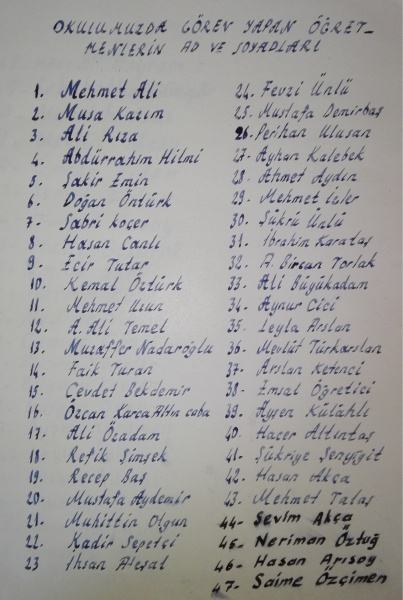 OKULUMUZDA GÖREV YAPAN ÖĞRET-
MENLERİN AD VE SOYADLARI
1. Mehmet Ali
2. Musa Kazım
3. Ali Rıza
4. Abdürrahim Hilmi
5. Şakir Emin
6. Doğan Öntürk
7- Sabri Koçer
8- Hasan Canlı
9- Ecir Tutar
10. Kemal Öztürk
11. Mehmet Uzun
12. A. Ali Temel
13. Muzaffer Nadaroğlu
14- Faik Turan
15. Cevdet Bekdemir
16. Özcan Karca Altın caba
17. Ali Özadam
18. Refik Şimşek
19. Recep Baş
20- Mustafa Aydemir
21- Muhittin Olgun
22. Kadir Sepetçi
23 İhsan
24. Fevzi Ünlü
25- Mustafa Demirbaş
26- Perihan Ulusan
27- Ayhan Kalebek
28- Ahmet Aydın
29- Mehmet
30. Şükrü Ünlü
31. İbrahim Karataş
32. A. Bircan Torlak
33. Ali Büyükadam
34- Aynur Cici
35- Leyla Arslan
36- Mevlüt Türkarslan
37- Arslan Ketenci
38- Emsal Öğretici
39. Ayşen Külahlı
40. Hacer Altıntaş
41- Şükriye Şenyiğit
42- Hasan Akça
43. Mehmet Talaş
44- Sevim Akça
45- Neriman Öztuğ
46- Hasan Arısoy
47- Saime Özçimen